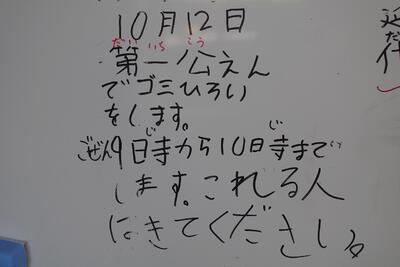 10月12日
だい いち こう
第一公えん
でゴミひろい
をします。
じ じ
ごぜん9時から10時まで
します。これる人
はきてください